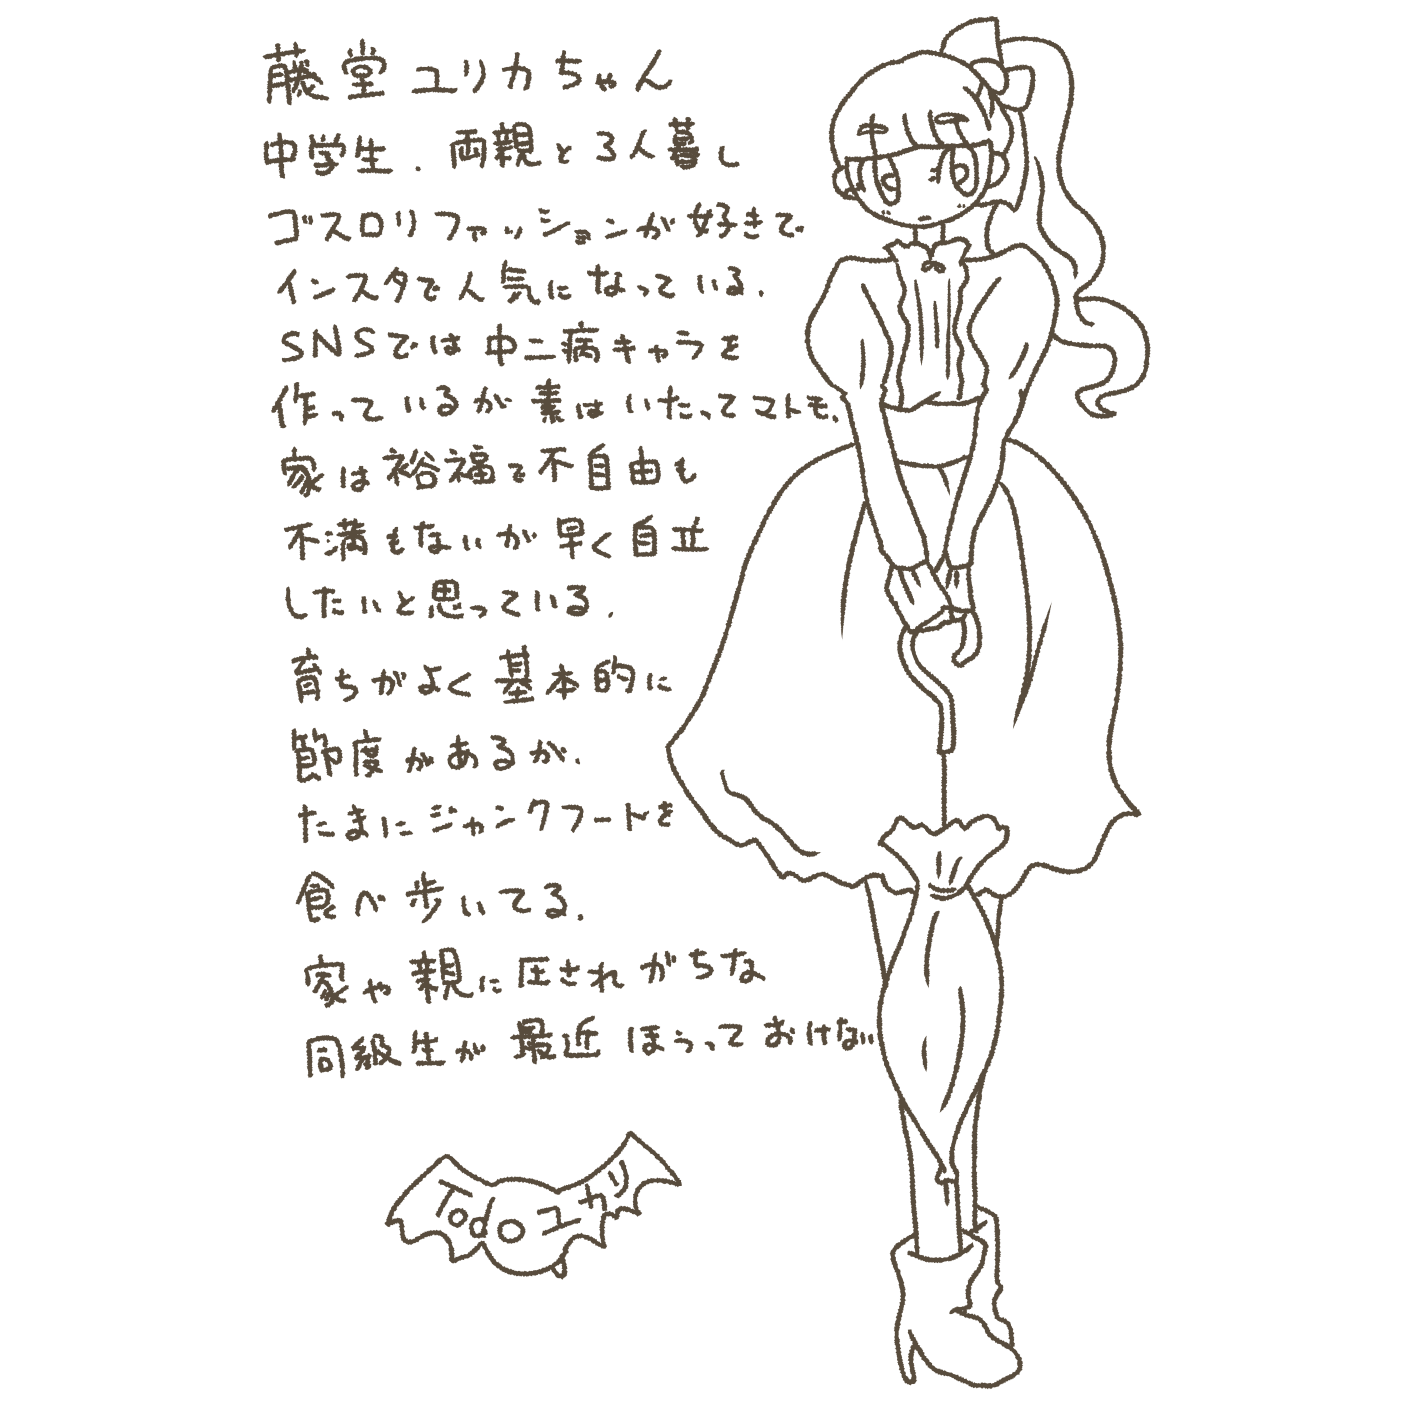 藤堂ユリカちゃん
中学生.両親と3人暮し
ゴスロリファッションが好きで
インスタで人気になっている.
SNSでは中二病キャラを
作っているが素はいたってマトモ.
家は裕福で不自由も
不満もないが早く自立
したいと思っている.
育ちがよく基本的に
節度があるが.
たまにジャンクフードを
食べ歩いてる.
家や親に圧されがちな
同級生が最近ほうっておけない
Todoユカリ